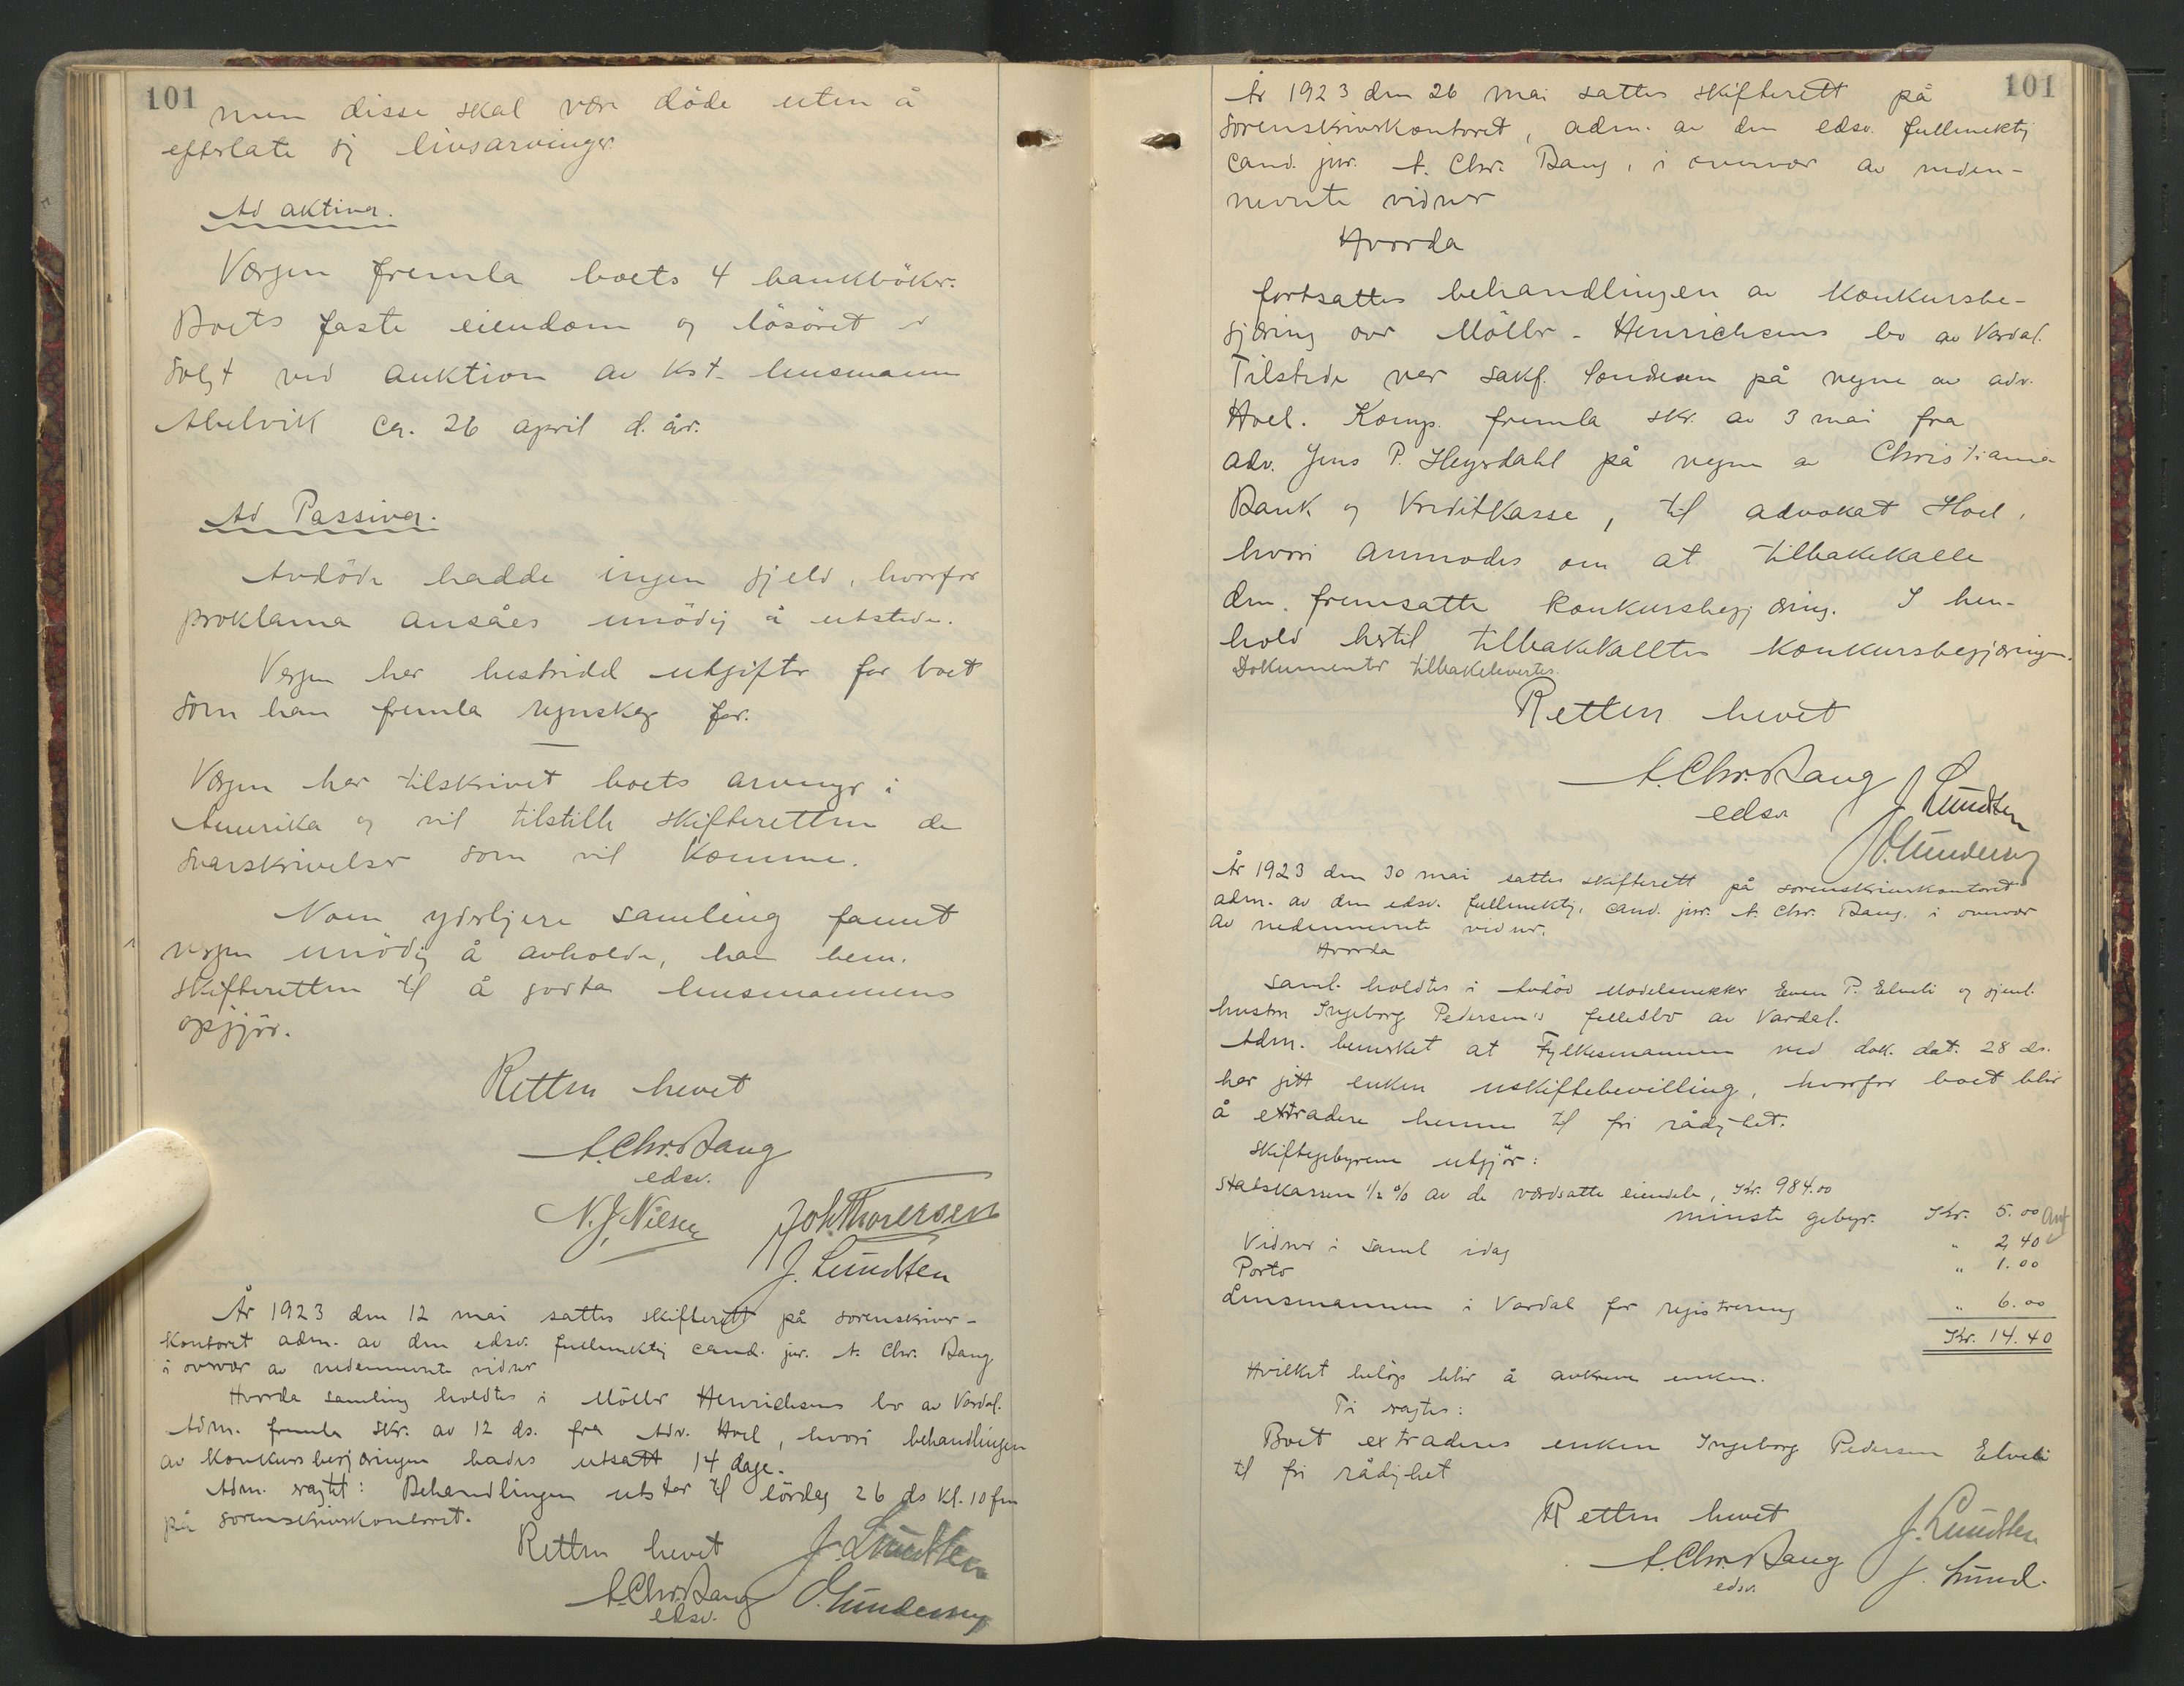 101
men disse skal være døde uten å
efterlate sj livsarvinger.
Ad aktiva.
Værjen fremla boets 4 bankbøker.
Boets faste eiendom og løsøret er
solgt ved auktion av kst. lensmann
Abelvik ca. 26 april d. år.
Ad Passiva.
Avdøde hadde ingen gjeld, hvorfor
proklama ansåes unødig å utstede.
Vergen har bestridd utgifter for boet
som han fremla regnskap for.
Vergen har tilskrivet boets arvinger i
Amerika og vil tilstille skifteretten de
svarskrivelser som vil komme.
Noen yderligere samling fannt
vergen unødig å avholde, han bem.
skifteretten til å godta lensmannens
opgjør.
Retten hevet
A. Chr. Bang
edsv.
N. J. Nilsen Joh Thoresen
J. Lundsten
År 1923 den 12 mai sattes skifterett på sorenskriver-
kontoret adm. av den edsv. fullmektig cand. jur. A. Chr. Bang
i overvær av nedennevnte vidner
Hvorda samling holdtes i Møller Henrichsens bo av Vardal.
Adm. fremla skr. av 12 ds. fra Adv. Hoel, hvori behandlingen
av konkursbegjæringen bades utsatt 14 dage.
Adm. vagtet: Behandlingen utstår til lørdag 26 ds kl. 10 fm
på sorenskriverkontoret.
Retten hevet J. Lundsten
A. Chr. Bang O. Gundersen
edsv.
101
År 1923 den 26 mai sattes skifterett på
sorenskriverkontoret, adm. av den edsv. fullmektig
cand. jur. A. Chr. Bang, i overvær av neden-
nevnte vidner
Hvorda
fortsattes behandlingen av konkursbe-
gjæring over Møller-Henrichsens bo av Vardal.
Tilstede var sakf. på vegne av adv.
Hoel. Komp. fremla skr. av 3 mai fra
adv. Jens P. Heyerdahl på vegne av Christiania
Bank og Kreditkasse, til advokat Hoel,
hvori anmodes om at tilbakekalle
den fremsatte konkursbegjæring. I hen-
hold hertil tilbakekalltes konkursbegjæringen.
Dokumenter tilbakelevertes.
Retten hevet
A. Chr. Bang
edsv J Lundsten
O. Gundersen
År 1923 den 30 mai sattes skifterett på sorenskriverkontoret
adm. av den edsv. fullmektig, cand. jur. A. Chr. Bang, i overvær
av nedennevnte vidner.
Hvorda
saml. holdtes i Avdød Modelsnekker Even P. Elveli og gjenl.
hustru Ingeborg Pedersen's fellesbo av Vardal.
Adm. bemerket at Fylkesmannen ved dok. dat. 28 ds.
har gitt enken uskiftebevilling, hvorfor boet blir
å extradere henne til fri rådighet.
Skiftegebyrene utgjør:
Statskassen 1/2 % av de værdsatte eiendele, Kr. 984.00
minste gebyr. Kr. 5.00
Vidner i saml idag " 2,40
Porto " 1.00
Lensmannen i Vardal for registrering " 6.00
Kr. 14.40
Hvilket beløp blir å avkreve enken.
Ti vagtes:
Boet extraderes enken Ingeborg Pedersen Elveli
til fri rådighet
Retten hevet J. Lundsten
A. Chr. Bang J. Lund.
edsv.